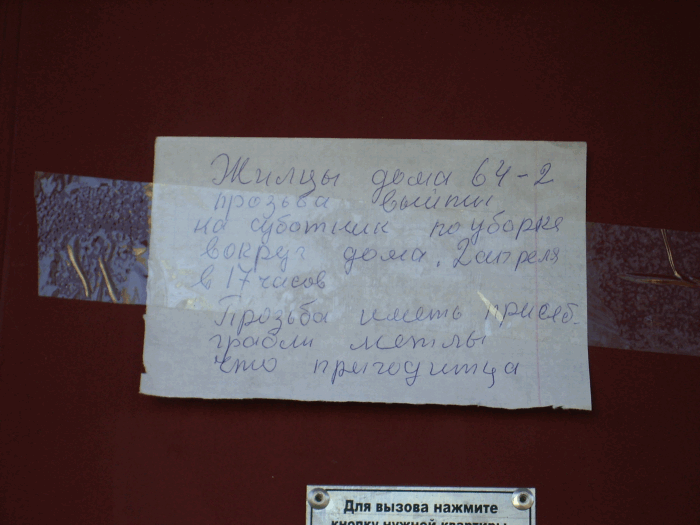 Жилцы дома 64-2
прозьва выйти
на суботник по уборке
вокруг дома. 2 апреля
в 17 часов
Прозьба иметь присеб-
грабли метлы
что пригодитца
Для вызова нажмите
кнопку нужной квартиры